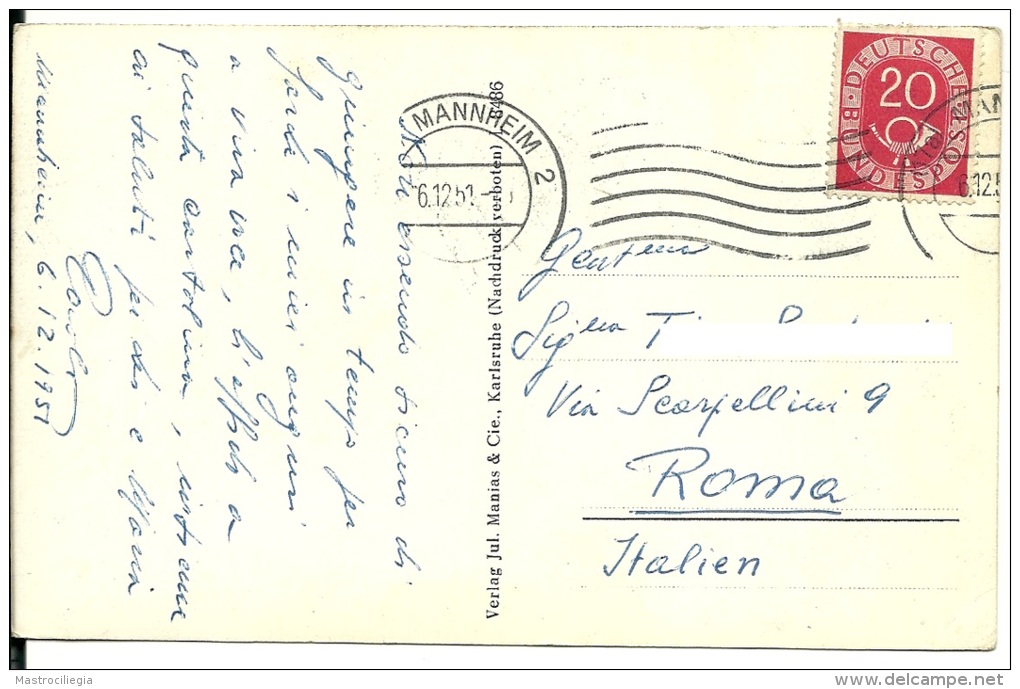 Non essendo sicuro di
giungere in tempo per
farle i miei auguri
a viva voce, li affido a
questa cartolina, insieme
ai saluti per lei e
Mannheim, 6.12.1951
Verlag Jul. Manias & Cie., Karlsruhe (Nachdruck verboten) 8486
MANNHEIM 2
6.12.51
DEUTSCHE BUNDESPOST
20
MAN
6.12.5
Gent.ma
Sig.na T
Via Scarpellini 9
ROMA
Italien
Mastrociliegia
delcampe.net